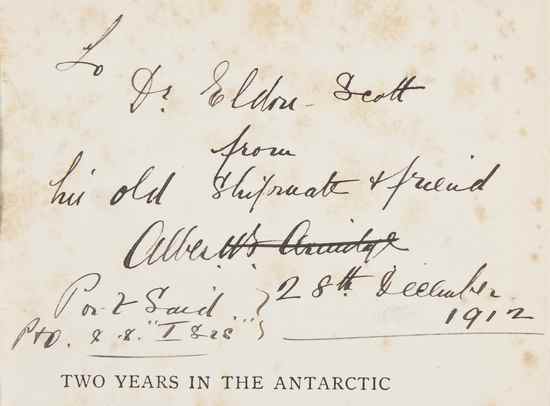 To
Dr Eldon-Scott
from
his old Shipmate & friend
Albert B. Armitage
Port Said } 28th December
P&O. S.S. "Isis" } 1912
TWO YEARS IN THE ANTARCTIC